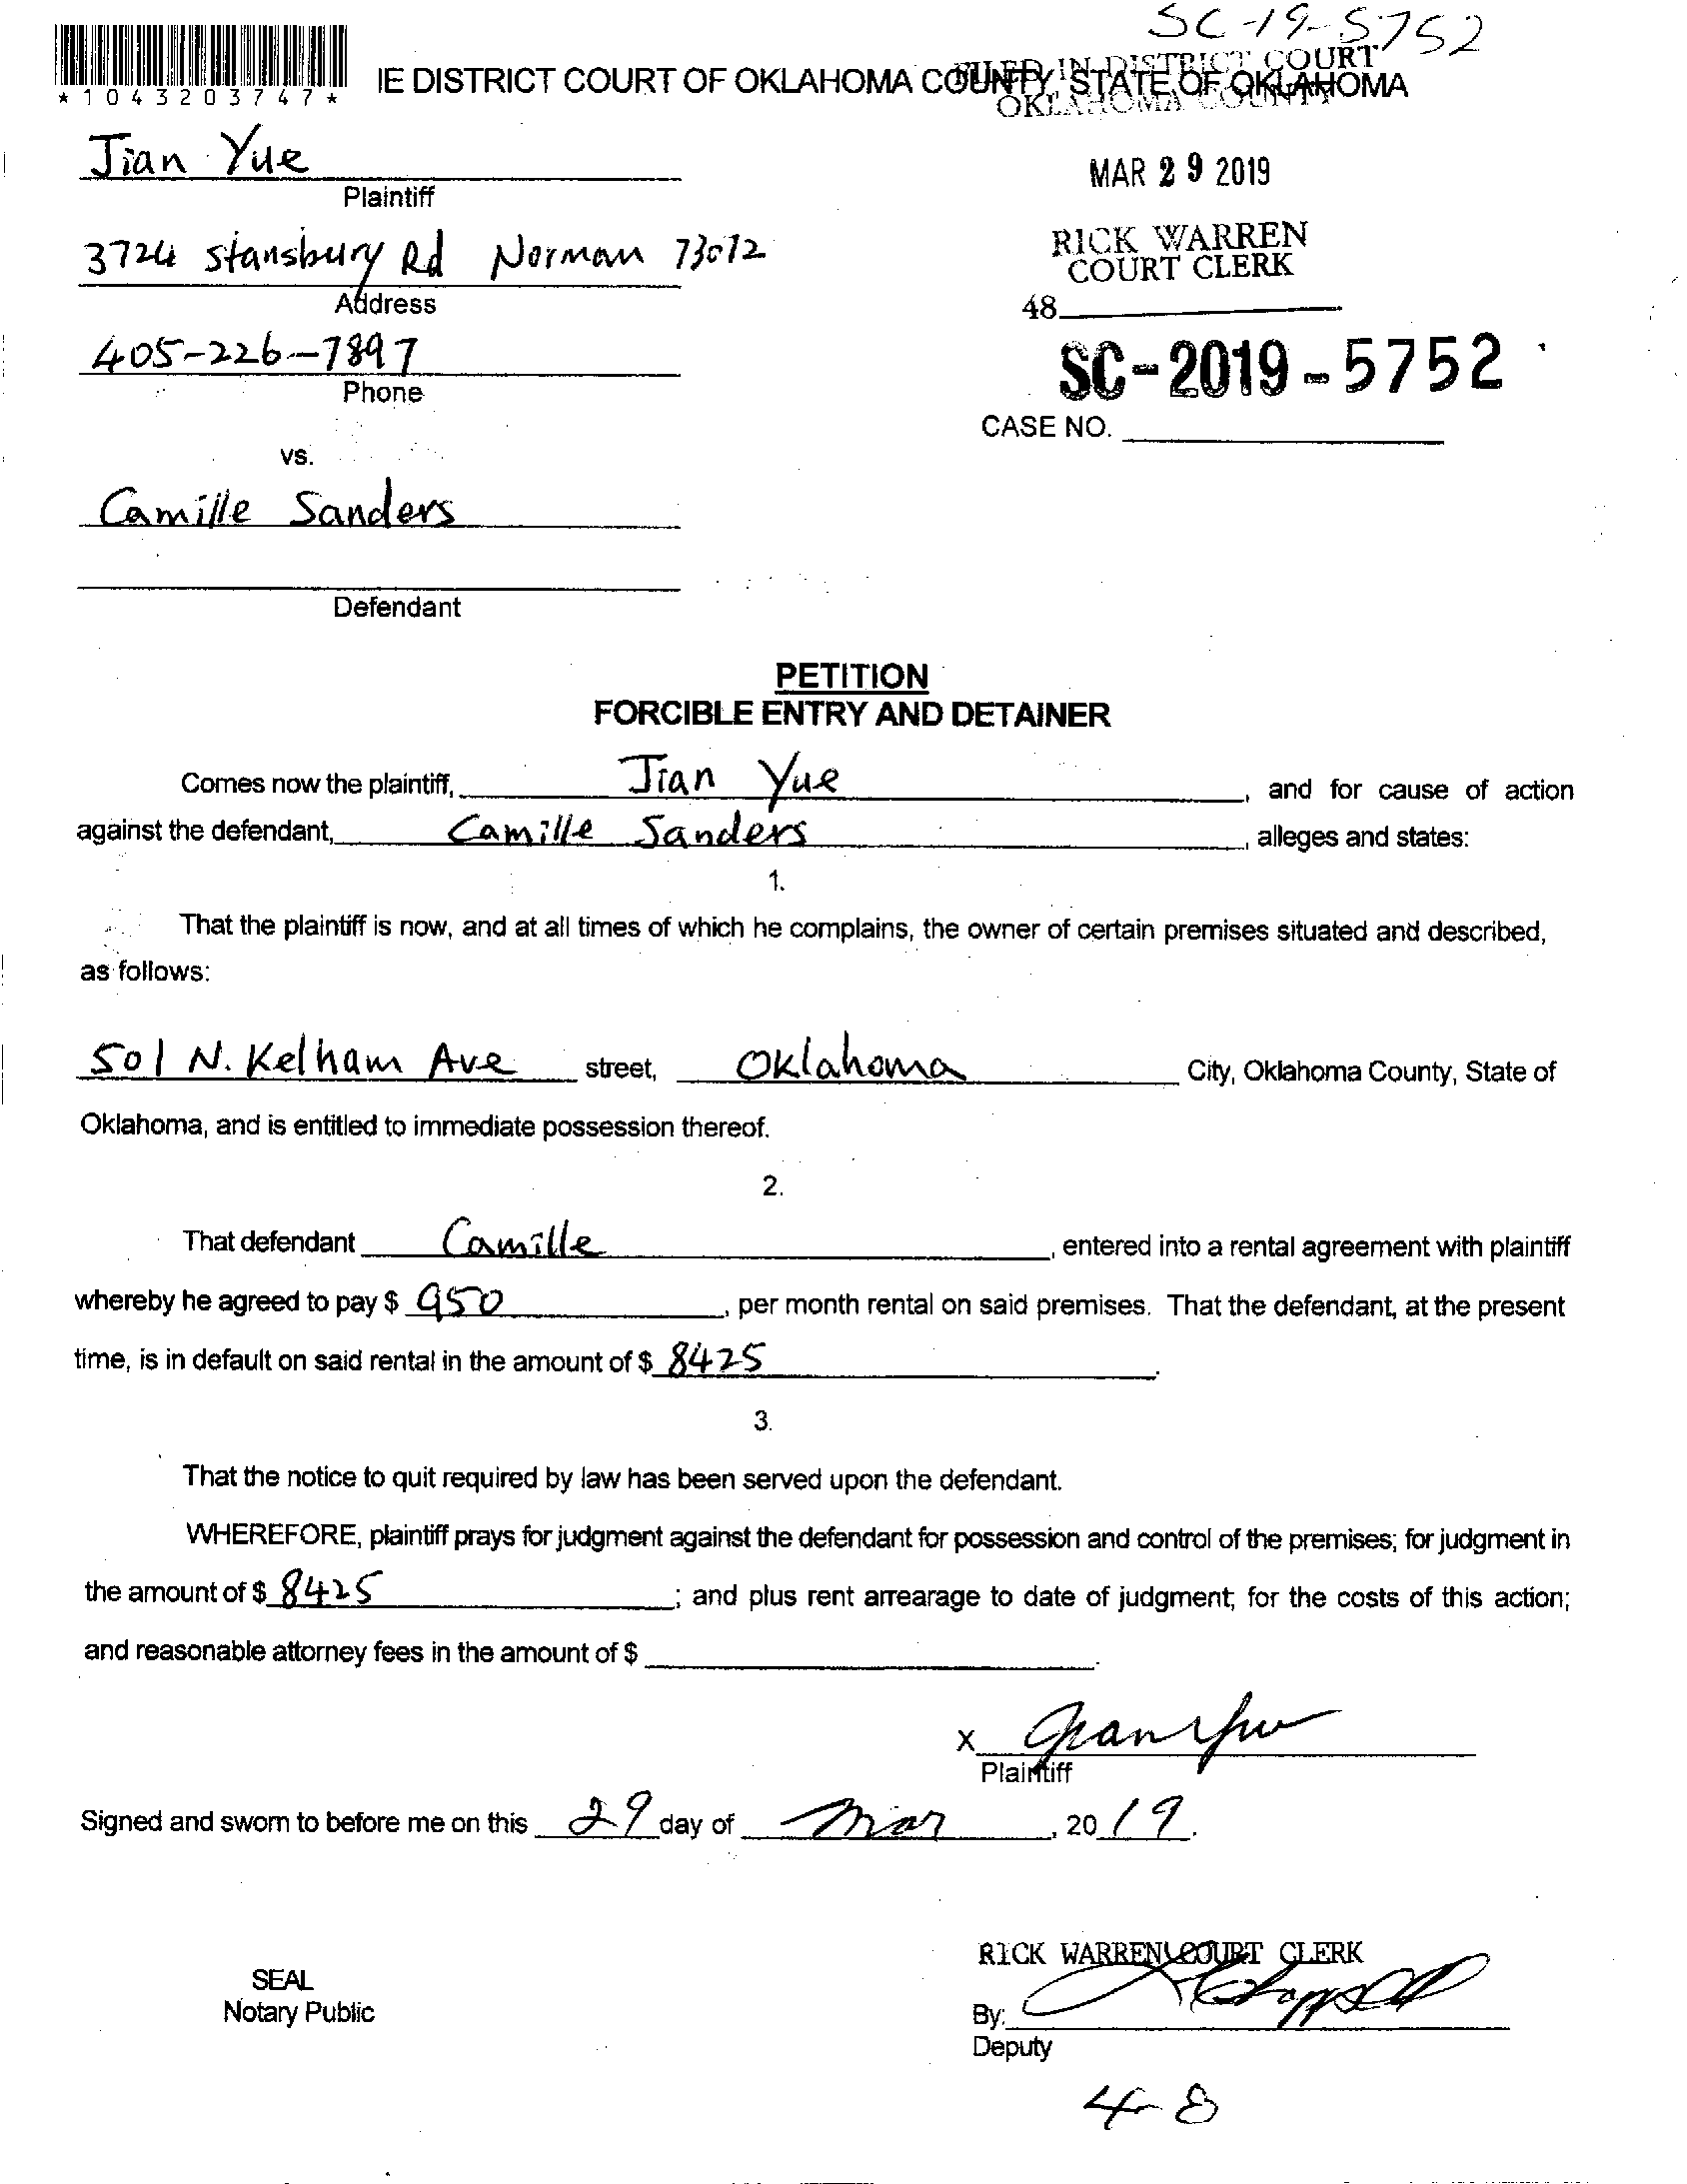 SC-19-5752
*1043203747*
IE DISTRICT COURT OF OKLAHOMA COUNTY, STATE OF OKLAHOMA
FILED IN DISTRICT COURT
OKLAHOMA COUNTY
Jian Yue
Plaintiff
MAR 29 2019
3724 Stansbury Rd Norman 73072
Address
RICK WARREN
COURT CLERK
48
405-226-7897
Phone
SC-2019-5752
CASE NO.
vs.
Camille Sanders
Defendant
PETITION
FORCIBLE ENTRY AND DETAINER
Comes now the plaintiff, Jian Yue, and for cause of action
against the defendant, Camille Sanders, alleges and states:
1.
That the plaintiff is now, and at all times of which he complains, the owner of certain premises situated and described,
as follows:
501 N. Kelham Ave street, Oklahoma City, Oklahoma County, State of
Oklahoma, and is entitled to immediate possession thereof.
2.
That defendant Camille, entered into a rental agreement with plaintiff
whereby he agreed to pay $ 950, per month rental on said premises. That the defendant, at the present
time, is in default on said rental in the amount of $ 8425.
3.
That the notice to quit required by law has been served upon the defendant.
WHEREFORE, plaintiff prays for judgment against the defendant for possession and control of the premises; for judgment in
the amount of $ 8425; and plus rent arrearage to date of judgment; for the costs of this action;
and reasonable attorney fees in the amount of $ .
X
Plaintiff
Signed and sworn to before me on this 29 day of Mar, 2019.
RICK WARREN COURT CLERK
SEAL
Notary Public
By:
Deputy
4-8